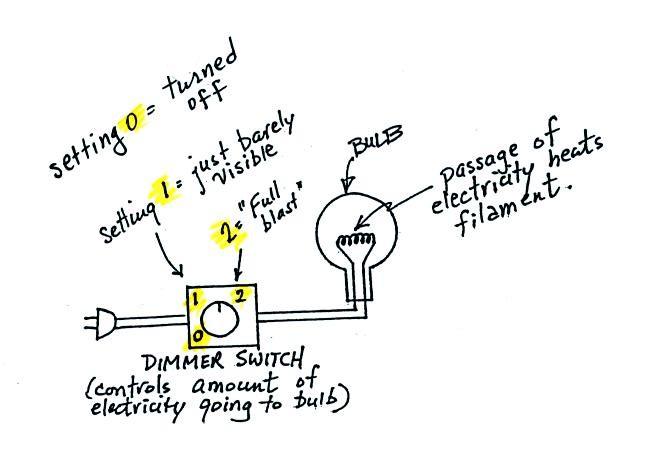 setting 0 = turned
off
setting 1 = just barely
visible
2 = "Full
blast"
BULB
passage of
electricity heats
filament.
1 2
0
DIMMER SWITCH
(controls amount of
electricity going to bulb)